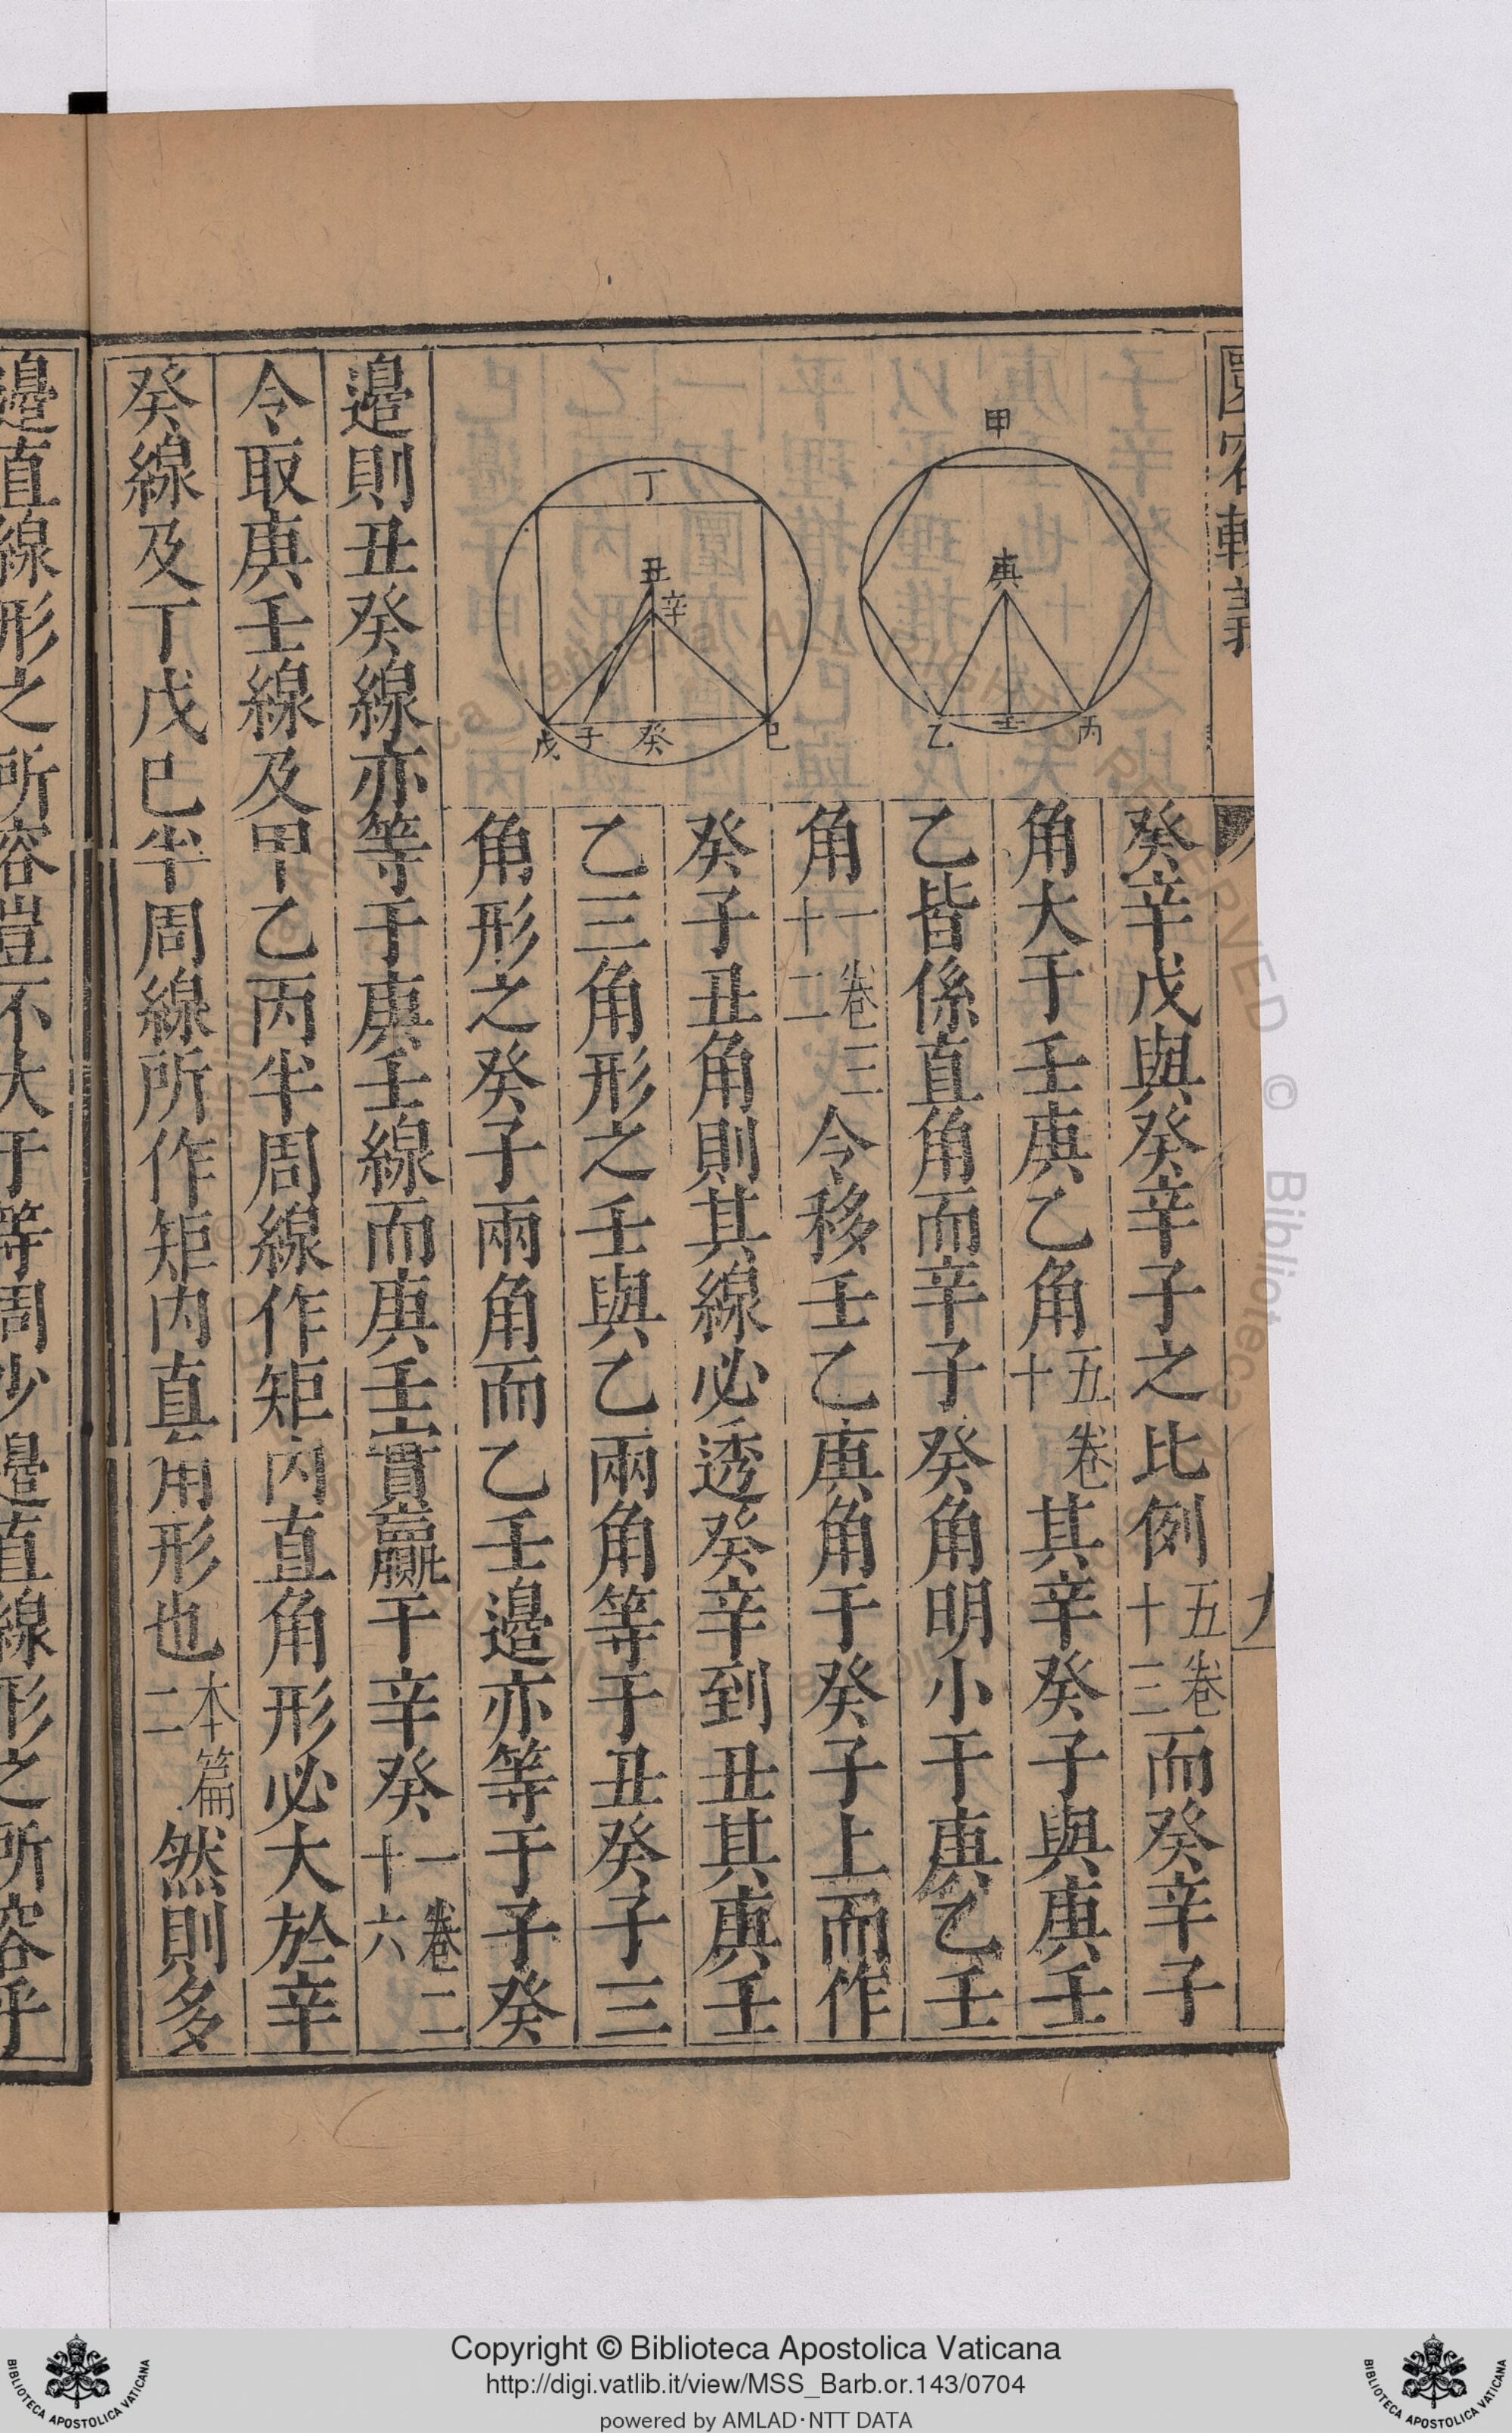 圜容較義
九
甲
庚
乙
壬
丙
丁
丑
辛
戊
子
癸
己
癸辛戊與癸辛子之比例五卷十三而癸辛子
角大于壬庚乙角五卷十其辛癸子與庚壬
乙皆係直角而辛子癸角明小于庚乙壬
角一卷三十二令移壬乙庚角于癸子上而作
癸子丑角則其線必透癸辛到丑其庚壬
乙三角形之壬與乙兩角等于丑癸子三
角形之癸子兩角而乙壬邊亦等于子癸
邊則丑癸線亦等于庚壬線而庚壬實贏于辛癸一卷二十六
令取庚壬線及甲乙丙半周線作矩内直角形必大於辛
癸線及丁戊巳半周線所作矩内直角形也本篇二然則多
邊直線形之所容豈不大于等周少邊直線形之所容乎
Copyright © Biblioteca Apostolica Vaticana
http://digi.vatlib.it/view/MSS_Barb.or.143/0704
powered by AMLAD·NTT DATA
BIBLIOTECA APOSTOLICA VATICANA
BIBLIOTECA APOSTOLICA VATICANA